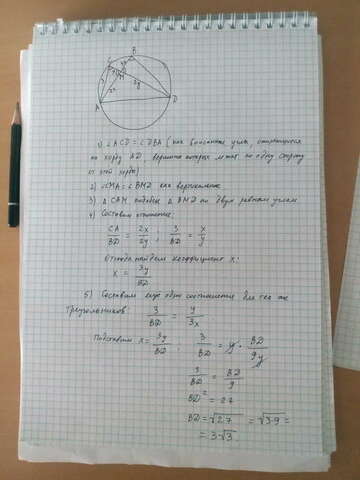 B
C
M
3
2x
3x
y
2y
A
D
1) ∠ACD = ∠DBA (как вписанные углы, опирающиеся
на хорду AD, вершины которых лежат по одну сторону
от этой хорды)
2) ∠CMA = ∠BMD как вертикальные
3) △ CAM подобны △ BMD по двум равным углам
4) Составим отношение:
CA/BD = 2x/2y ; 3/BD = x/y
Отсюда найдем коэффициент x:
x = 3y/BD
5) Составим еще одно соотношение для тех же
треугольников: 3/BD = y/3x
Подставим x = 3y/BD ; 3/BD = y · BD/9y
3/BD = BD/9
BD² = 27
BD = √27 = √3·9 =
= 3·√3